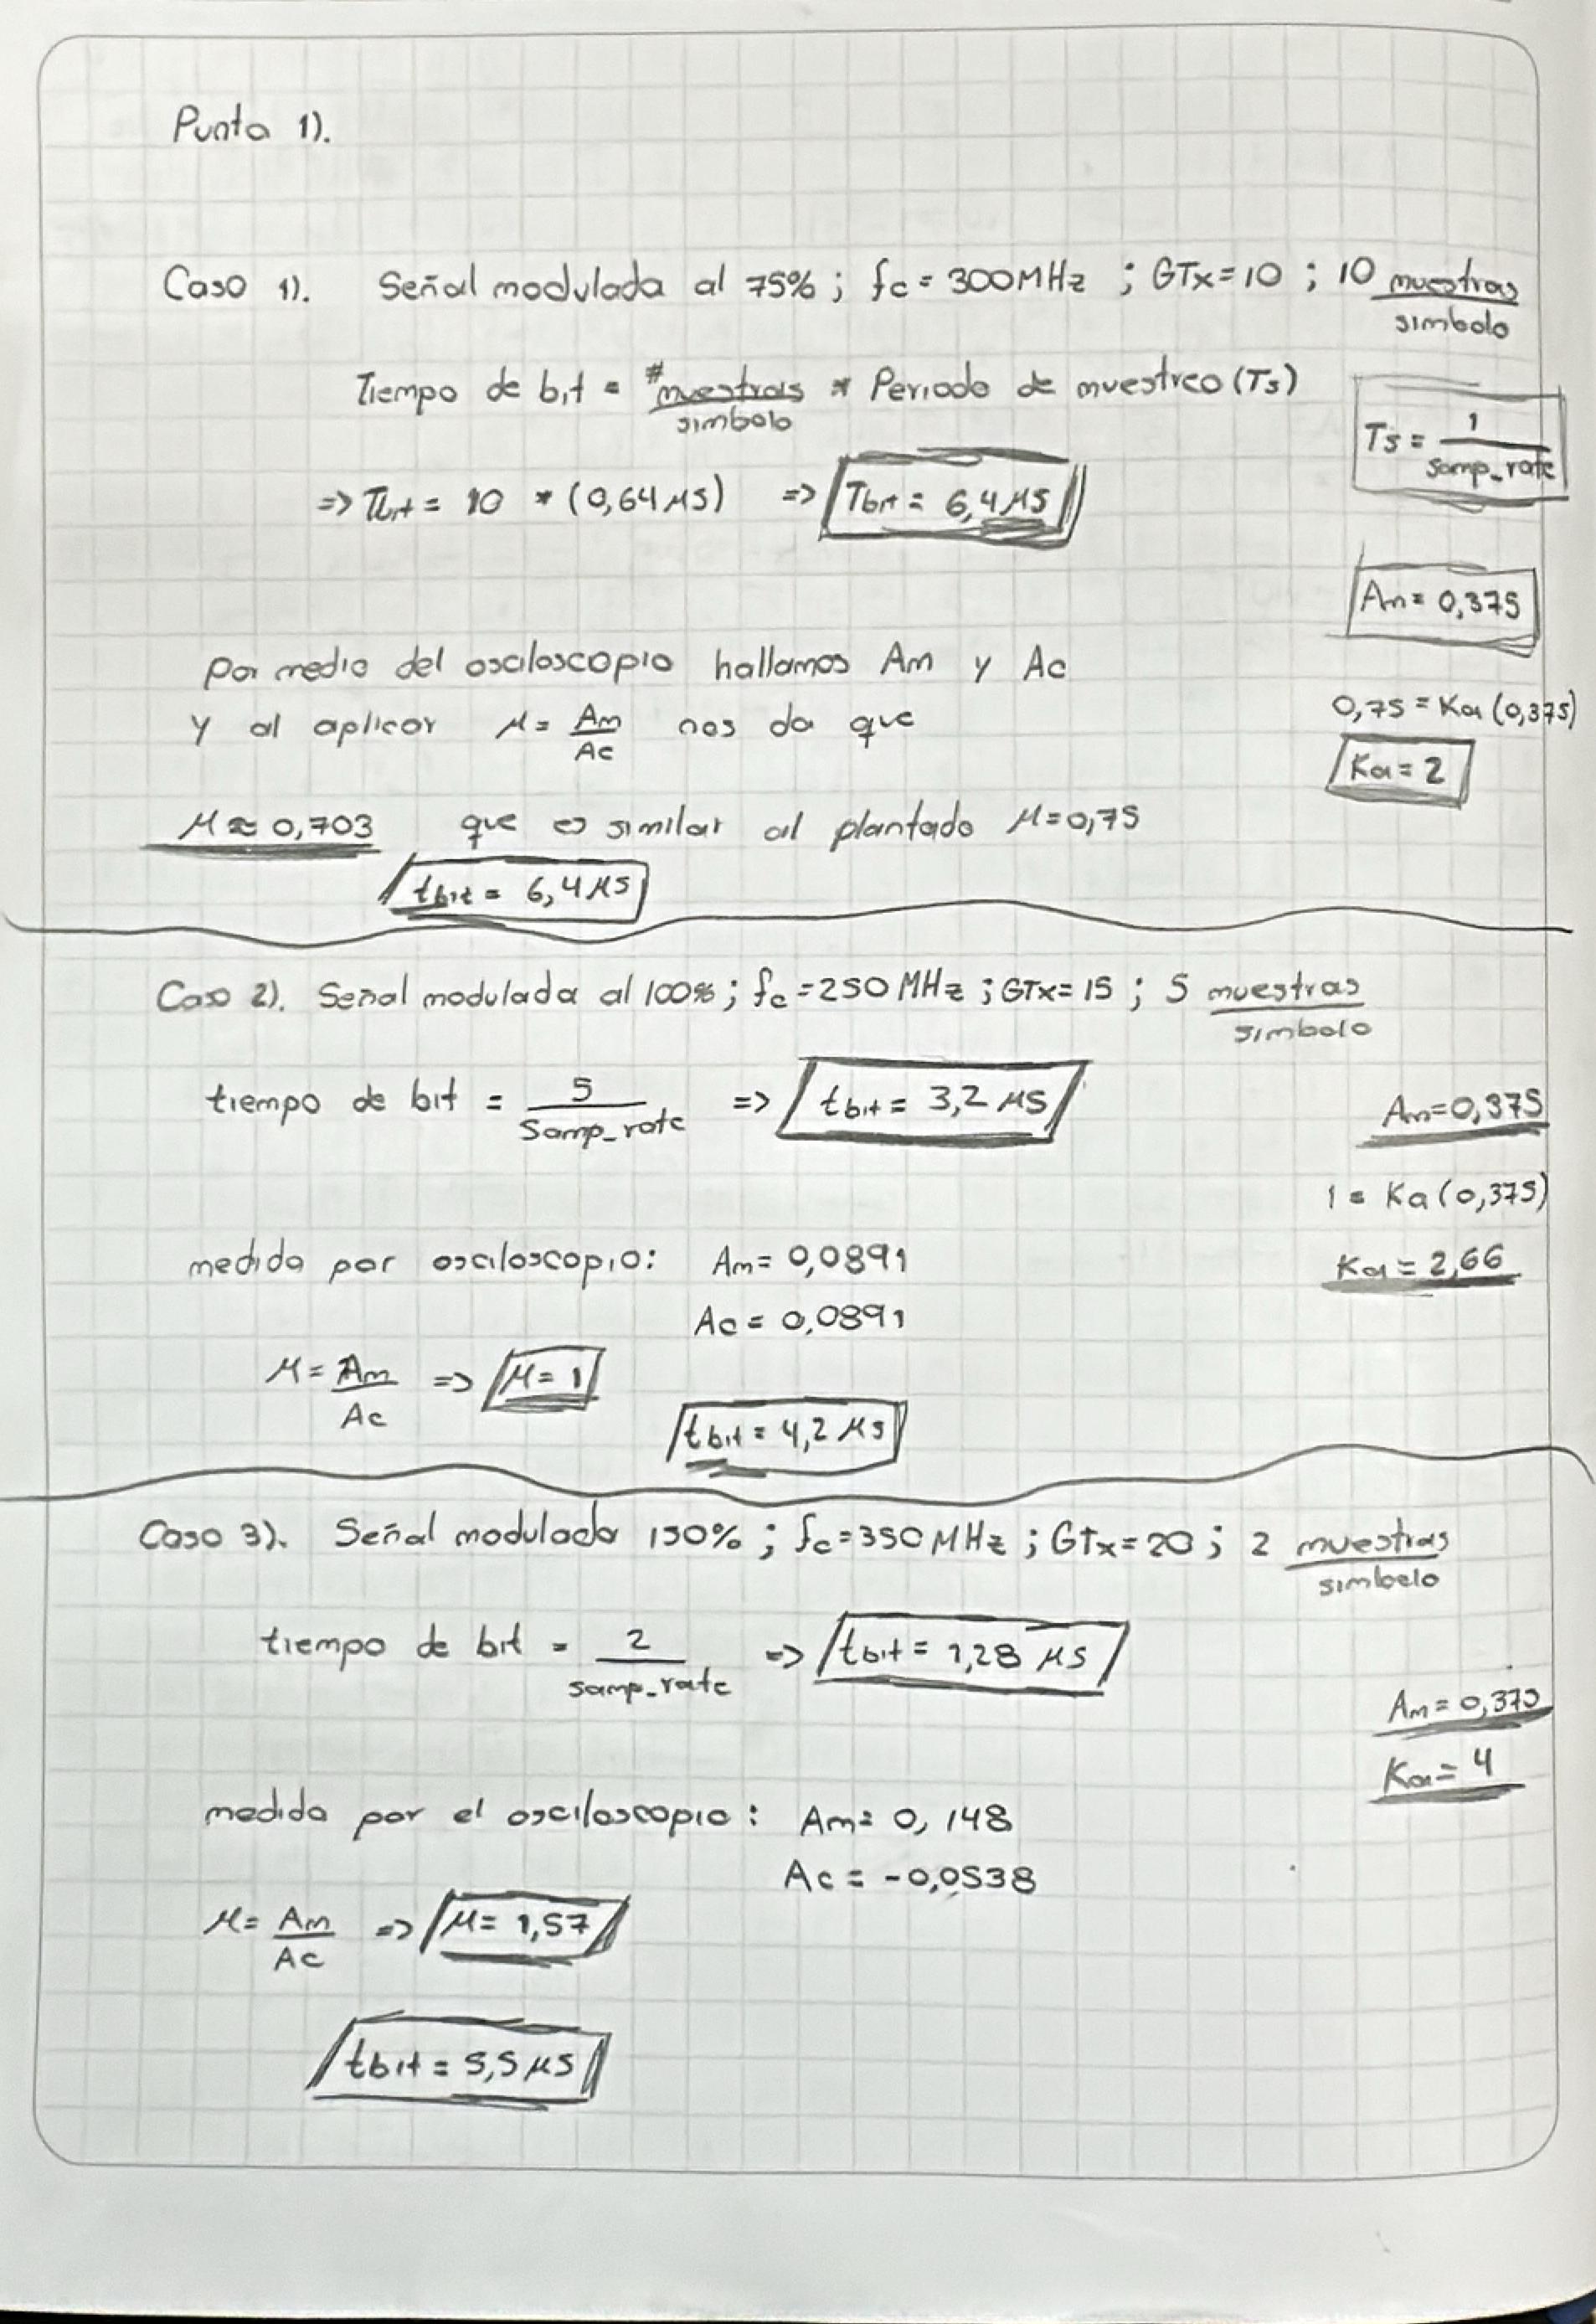 Punto 1).
Caso 1). Señal modulada al 75% ; fc = 300MHz ; GTx=10 ; 10 muestras/simbolo
Tiempo de bit = # muestras/simbolo * Periodo de muestreo (Ts)
Ts = 1/samp_rate
=> Tbit = 10 * (0,64 μs) => Tbit = 6,4 μs
Am = 0,375
por medio del osciloscopio hallamos Am y Ac
0,75 = Ka (0,375)
y al aplicar μ = Am/Ac nos da que
Ka = 2
μ ≈ 0,703 que es similar al plantado μ=0,75
tbit = 6,4 μs
Caso 2). Señal modulada al 100% ; fc = 250 MHz ; GTx= 15 ; 5 muestras/simbolo
tiempo de bit = 5/Samp_rate => tbit = 3,2 μs
Am=0,375
1 = Ka (0,375)
medida por osciloscopio: Am= 0,0891
Ka = 2,66
Ac = 0,0891
μ = Am/Ac => μ = 1
tbit = 4,2 μs
Caso 3). Señal modulada 150% ; fc = 350 MHz ; GTx = 20 ; 2 muestras/simbolo
tiempo de bit = 2/samp_rate => tbit = 1,28 μs
Am = 0,375
Ka = 4
medida por el osciloscopio : Am= 0,148
Ac = -0,0538
μ = Am/Ac => μ = 1,57
tbit = 5,5 μs